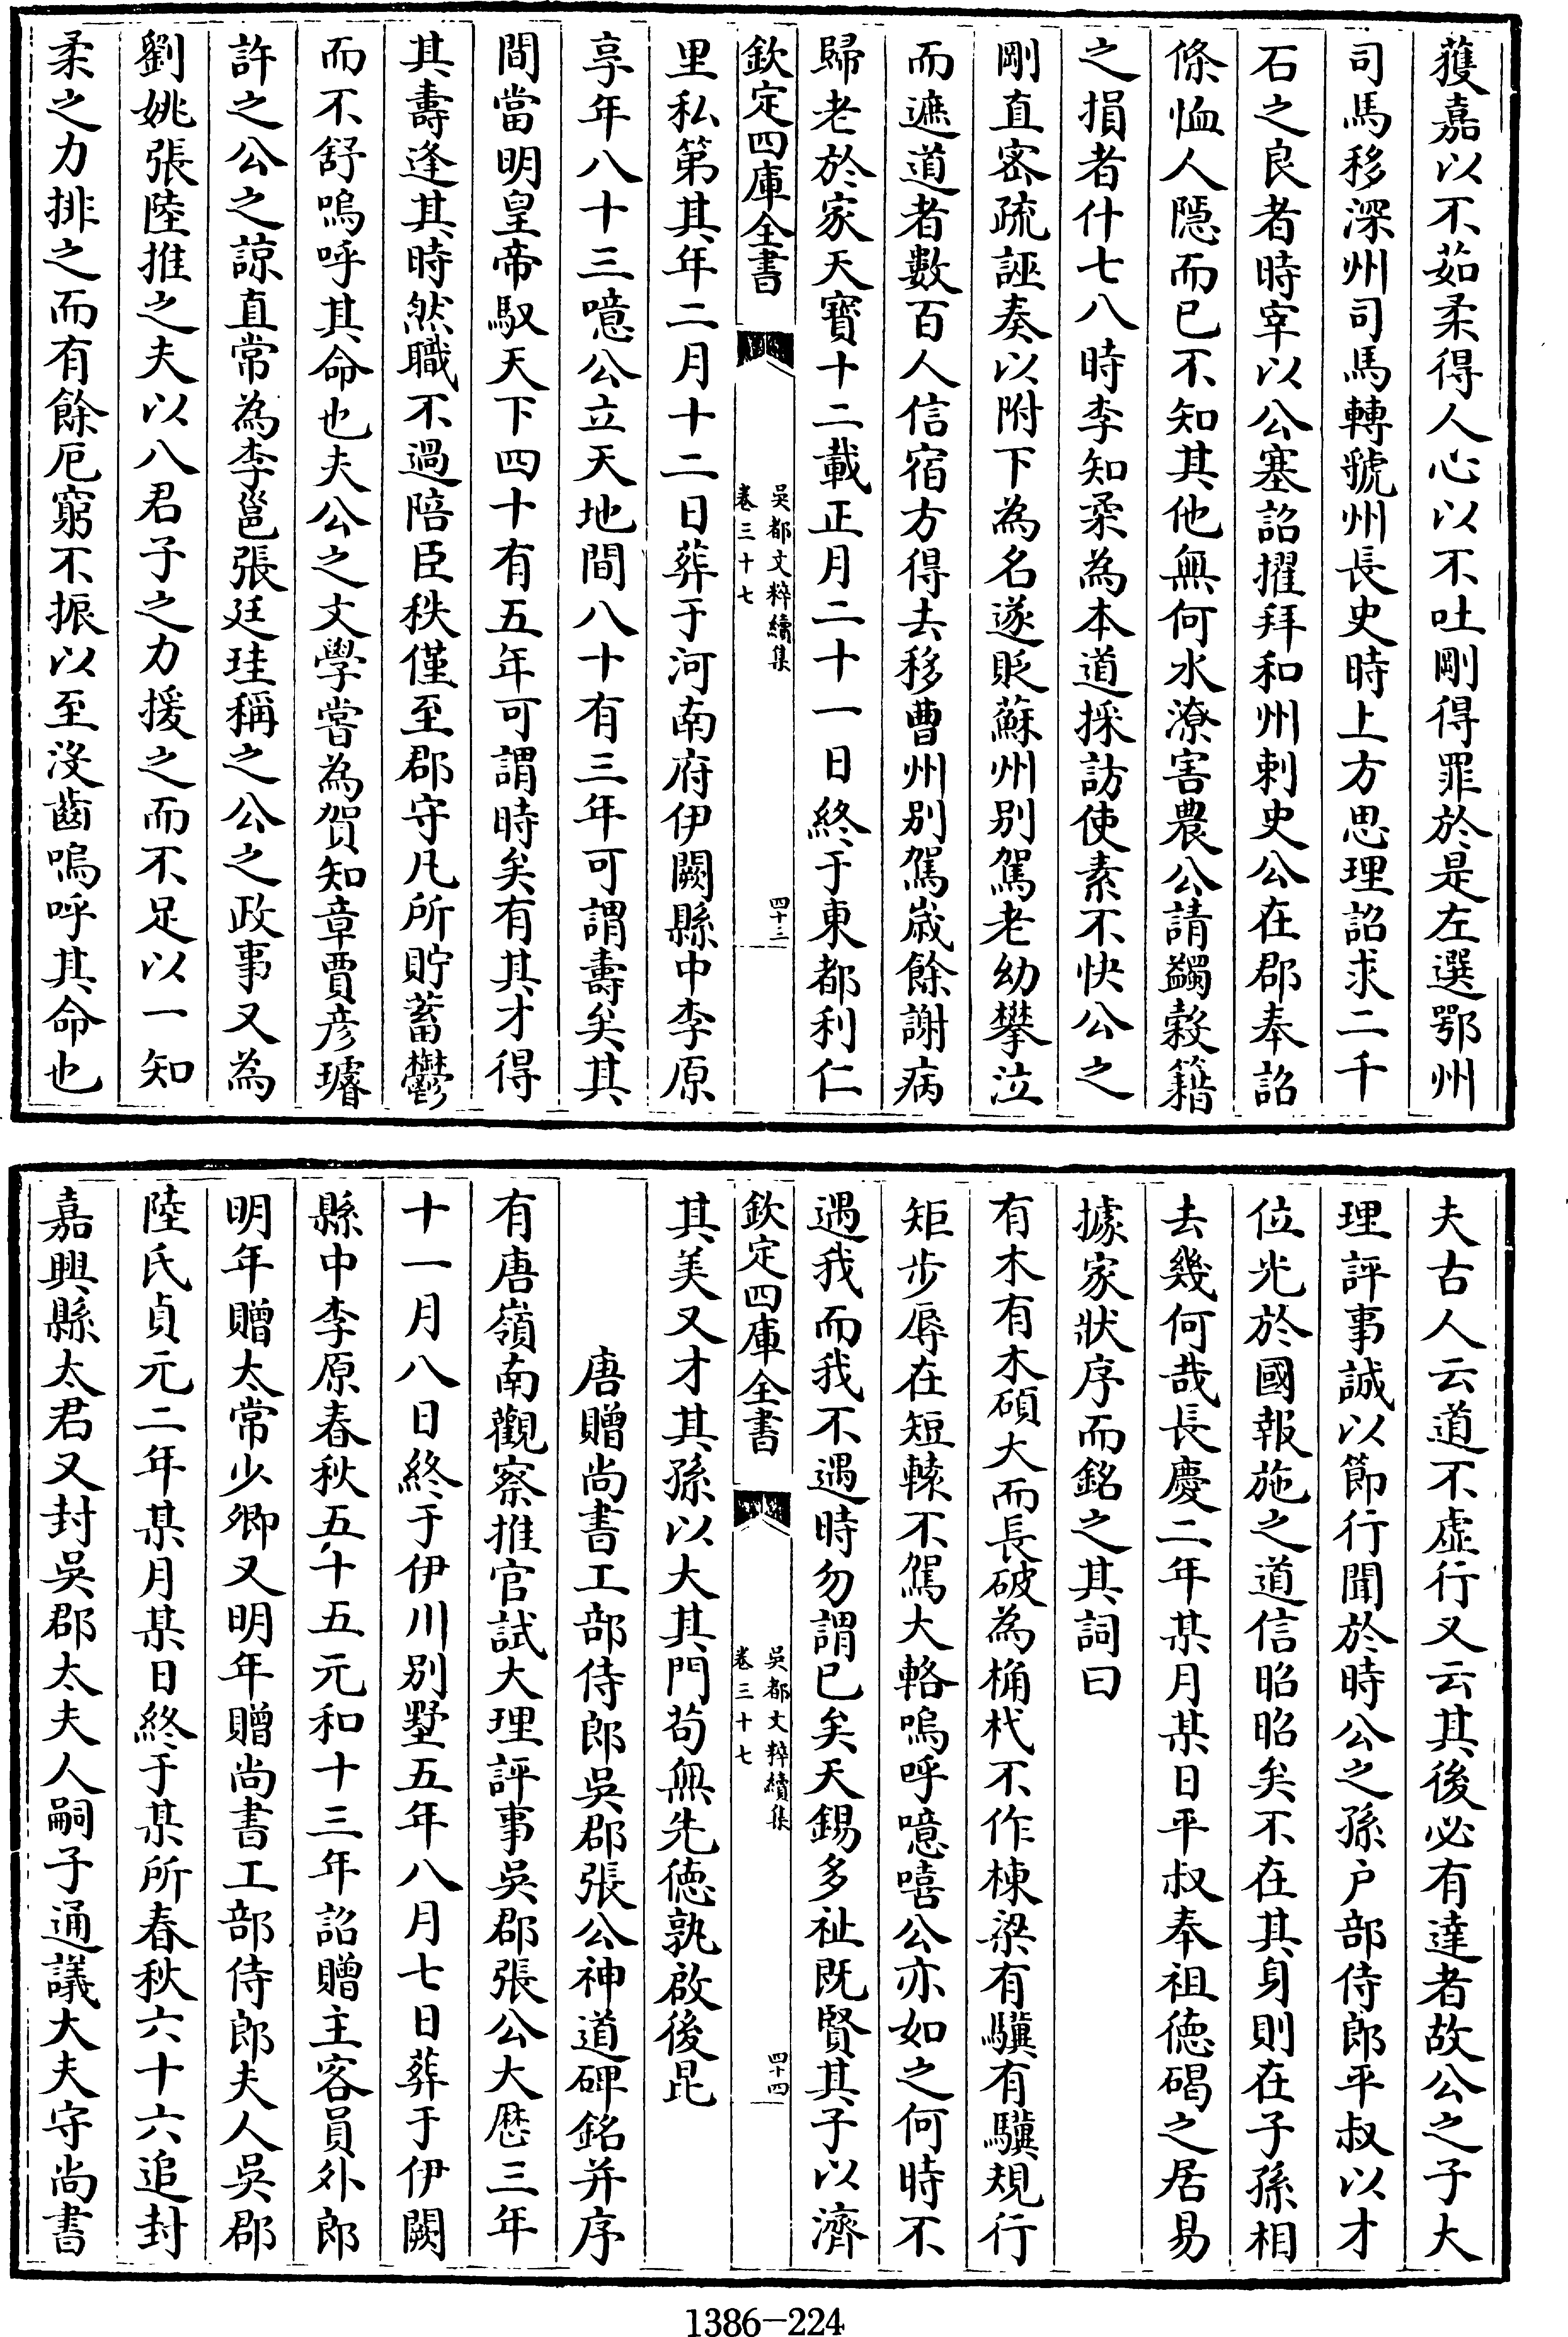 獲嘉以不茹柔得人心以不吐剛得罪於是左選鄂州
司馬移深州司馬轉虢州長史時上方思理詔求二千
石之良者時宰以公塞詔擢拜和州刺史公在郡奉詔
條恤人隱而已不知其他無何水潦害農公請蠲穀籍
之損者什七八時李知柔為本道採訪使素不快公之
剛直宻疏誣奏以附下為名遂貶蘇州别駕老幼攀泣
而遮道者數百人信宿方得去移曹州别駕嵗餘謝病
歸老於家天寳十二載正月二十一日終于東都利仁
欽定四庫全書
吳都文粹續集
卷三十七
四十三
里私第其年二月十二日葬于河南府伊闕縣中李原
享年八十三噫公立天地間八十有三年可謂壽矣其
間當明皇帝馭天下四十有五年可謂時矣有其才得
其壽逢其時然職不過陪臣秩僅至郡守凡所貯蓄鬱
而不舒嗚呼其命也夫公之文學嘗為賀知章賈彦璿
許之公之諒直常為李邕張廷珪稱之公之政事又為
劉姚張陸推之夫以八君子之力援之而不足以一知
柔之力排之而有餘厄窮不振以至沒齒嗚呼其命也
夫古人云道不虚行又云其後必有達者故公之子大
理評事誠以節行聞於時公之孫户部侍郎平叔以才
位光於國報施之道信昭昭矣不在其身則在子孫相
去幾何哉長慶二年某月某日平叔奉祖徳碣之居易
據家狀序而銘之其詞曰
有木有木碩大而長破為桷杙不作棟梁有驥有驥規行
矩步辱在短轅不駕大輅嗚呼噫嘻公亦如之何時不
遇我而我不遇時勿謂已矣天錫多祉既賢其子以濟
欽定四庫全書
吳都文粹續集
卷三十七
四十四
其美又才其孫以大其門茍無先徳孰啟後昆
唐贈尚書工部侍郎吳郡張公神道碑銘并序
有唐嶺南觀察推官試大理評事吳郡張公大厯三年
十一月八日終于伊川别墅五年八月七日葬于伊闕
縣中李原春秋五十五元和十三年詔贈主客員外郎
明年贈太常少卿又明年贈尚書工部侍郎夫人吳郡
陸氏貞元二年某月某日終于某所春秋六十六追封
嘉興縣太君又封吳郡太夫人嗣子通議大夫守尚書
1386-224